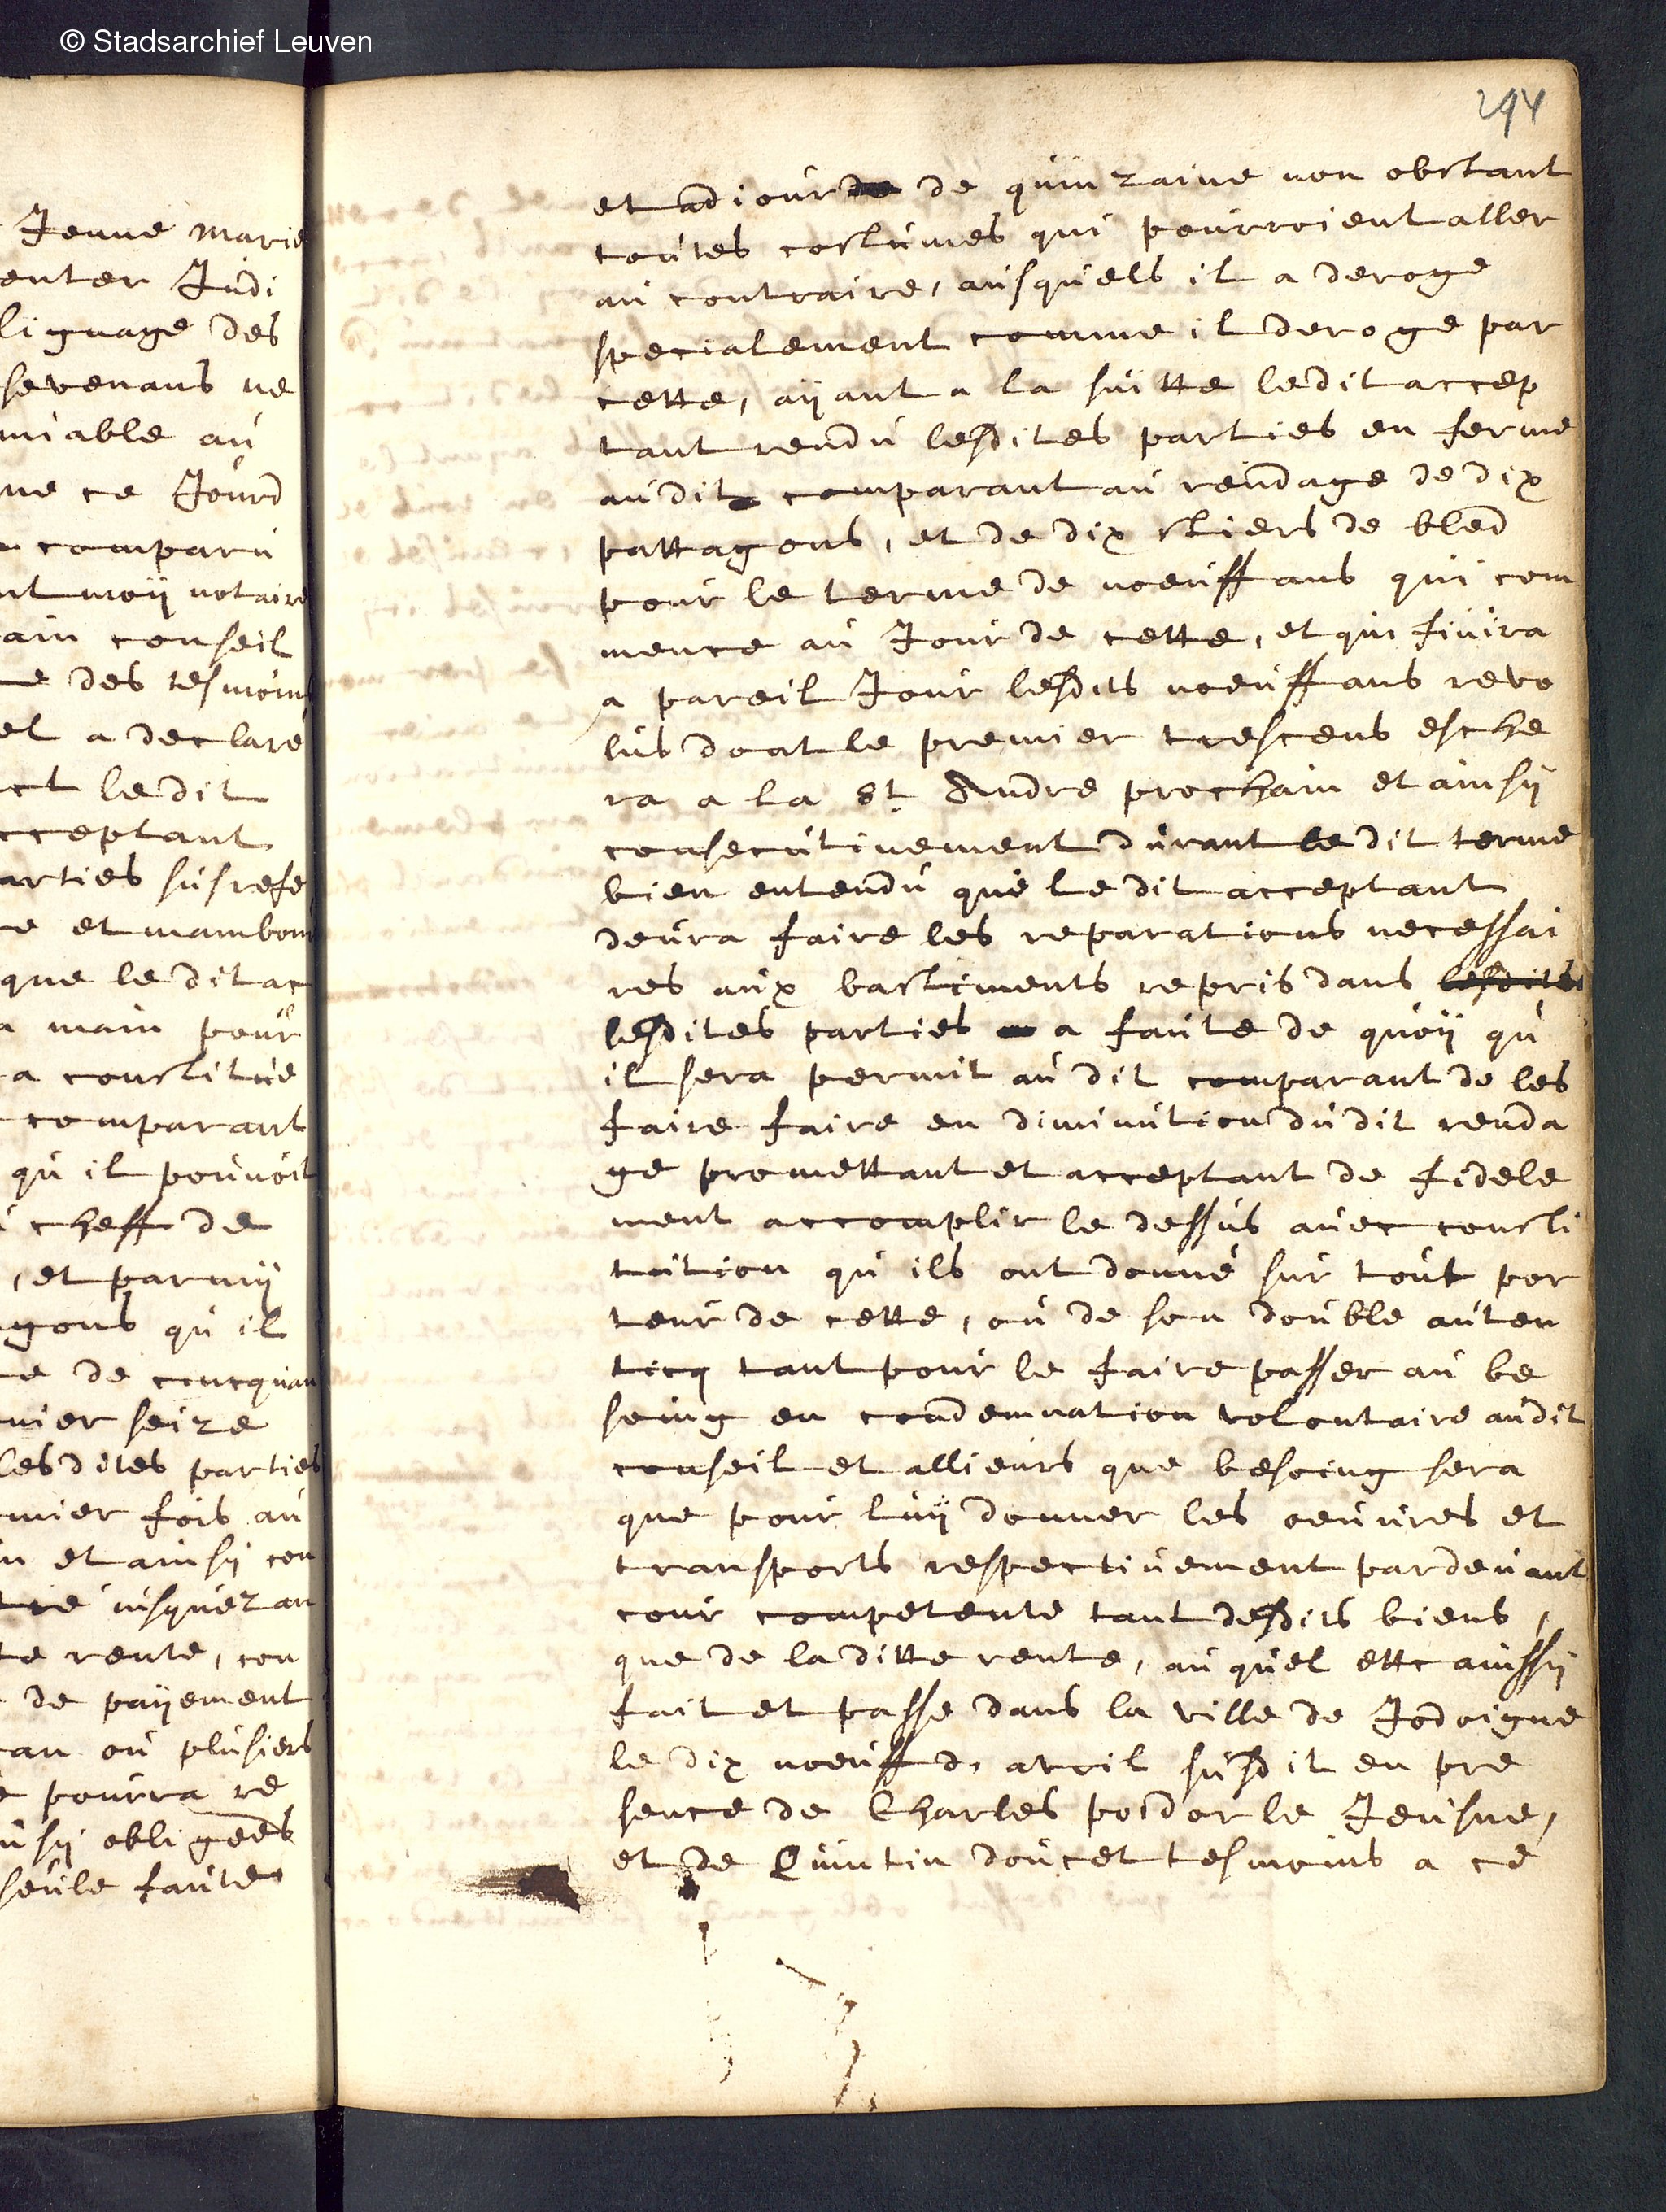 © Stadsarchief Leuven
Jenne marie
enter Judi
lignage des
sevenans ne
miable au
ne ce Jourd
comparu
nt moÿ notaire
ain conseil
des tesmoins
et a declaré
ct ledit
cceptant
arties susrefe
e et mambour
que le dit ac
a main pour
a constitue
comparant
qu il pouvoit
cheff de
, et parmÿ
gons qu il
e de
nier seize
lesdites parties
mier fois au
n et ainsÿ con
an
te rente, con
de paÿement
an ou plusiers
e pourra re
nsÿ obligees
seule faute
294
et adjour de quinzaine non obstant
toutes costumes qui pourroient aller
au contraire, ausquels il a deroge
specialement comme il deroge par
cette, aÿant a la suitte ledit accep
tant rendu lesdites parties en ferme
audit comparant au rendage de dix
pattagons, et de dix stiers de bled
pour le terme de noeuff ans qui com
mence au Jour de cette, et qui finira
a pareil Jour lesdits noeuff ans revo
lus dont le premier trescens esche
ra a la St. Andre prochain et ainsÿ
consecutivement durant ledit terme
bien entendu que le dit acceptant
devra faire les reparations necessai
res aux bastiments repris dans lesdites
lesdites parties a faute de quoÿ qu
il sera permit au dit comparant de les
faire faire en diminution dudit renda
ge promettant et acceptant de fidele
ment accomplir le dessus avec consti
tution qu ils ont donné sur tout por
teur de cette, ou de son double auten
ticq tant pour le faire passer au be
soing en condemnation volontaire audit
conseil et allieurs que besoing sera
que pour luÿ donner les oeuvres et
transports respectivement pardevant
cour competente tant desdits biens,
que de laditte rente, au quel ettc ainssÿ
fait et passe dans la ville de Jodoigne
le dix noeuff d. avril susdit en pre
sence de Charles poidor le Jeusne,
et de Quintin doucet tesmoins a ce